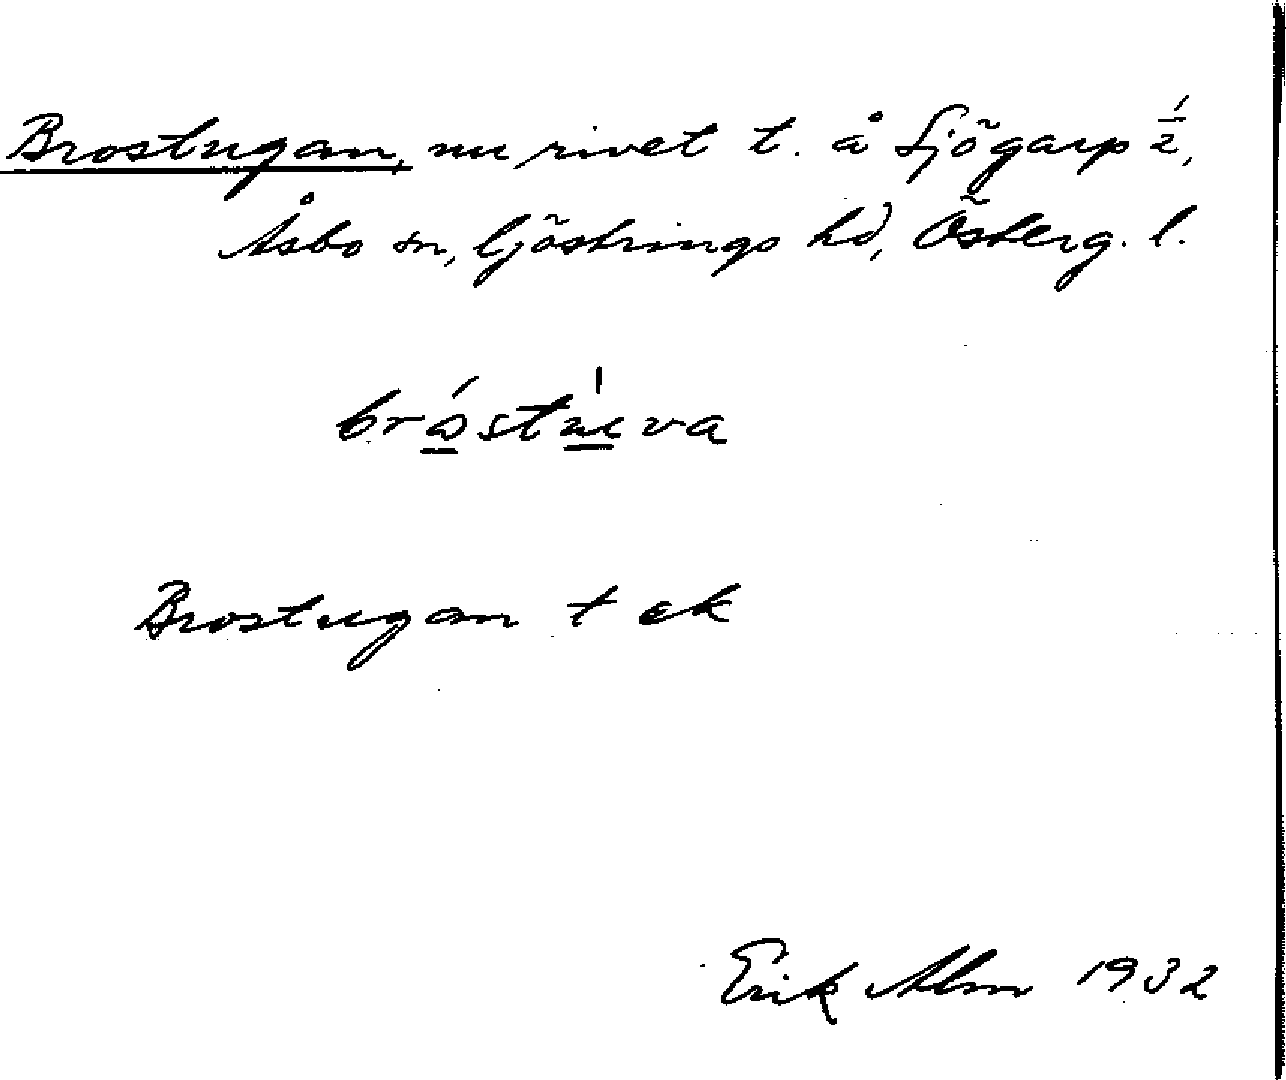 Brostugan, nu rivet t. å Sjögarp ½,
Åsbo sn, Göstrings hd, Österg. l.
bróstùva
Brostugan t ek
Erik Alm 1932